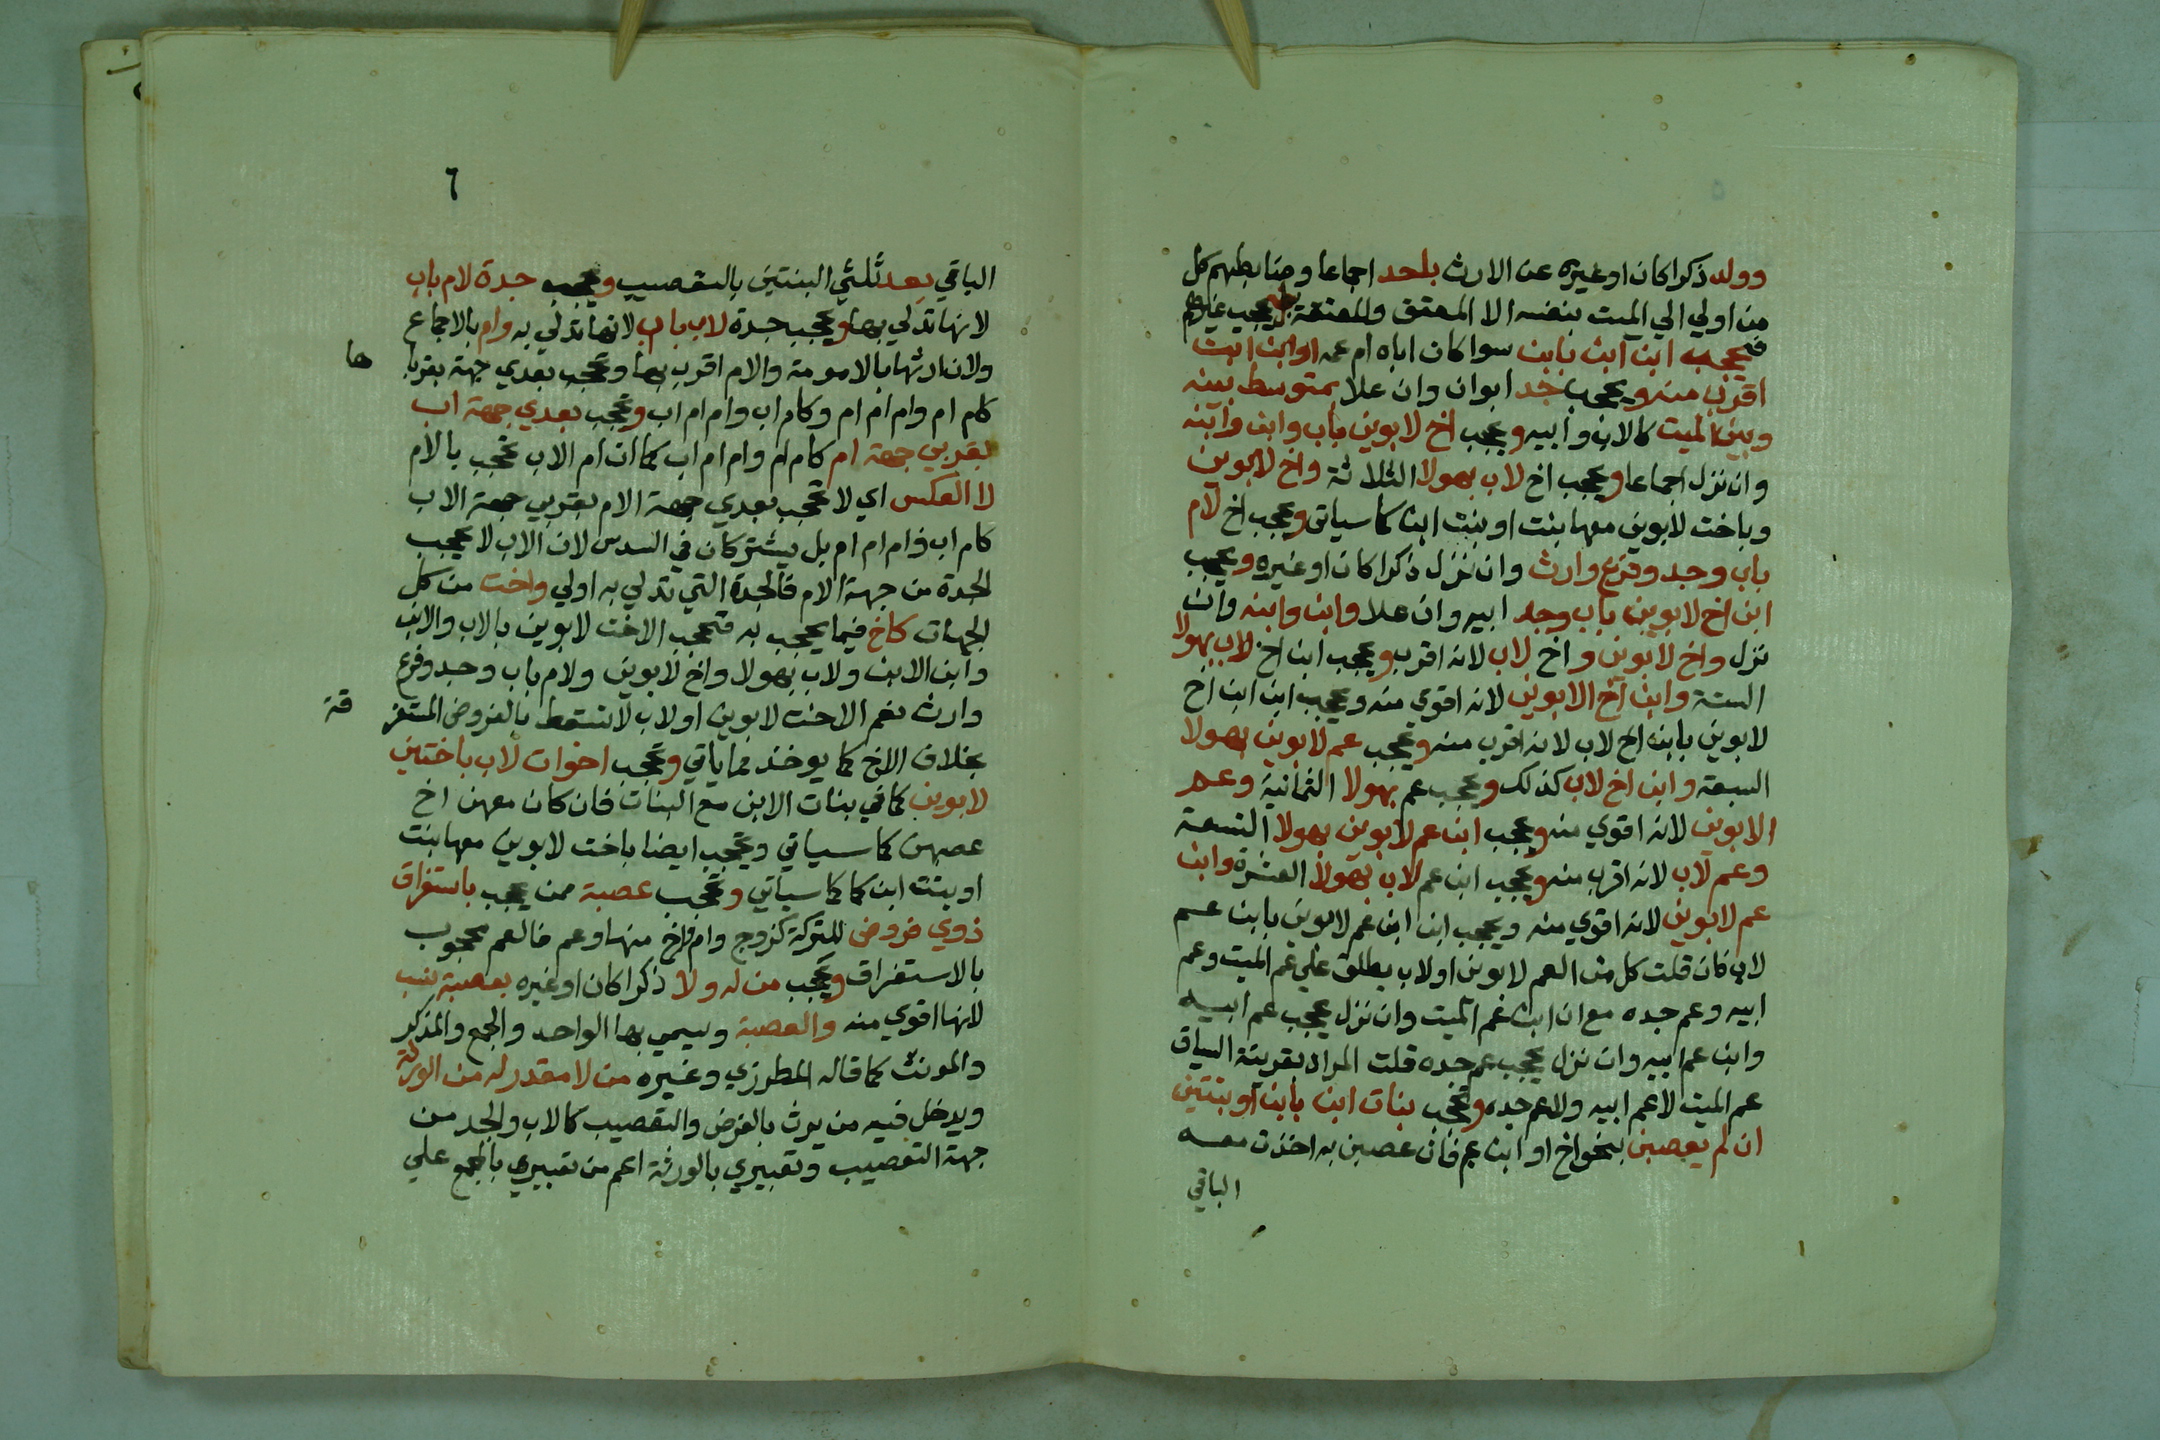 وولد ذكرا كان او غيره عن الارث باحد اجماعا وضابطهم كل
من ادلي الي الميت بنفسه الا المعتق والمعتقة يحجب غيرهم
فيحجب ابن ابن بابن سوا كان اباه ام عمه او ابن ابن
اقرب منه ويحجب جد ابوان وان علا بمتوسط بينه
وبين الميت كالاب وابيه ويحجب اخ لابوين باب وابن وابنه
وان نزل اجماعا ويحجب اخ لاب بهولا الثلاثة واخ لابوين
وباخت لابوين معها بنت او بنت ابن كما سياتي ويحجب اخ لام
باب وجد وفرع وارث وان نزل ذكرا كان او غيره ويحجب
ابن اخ لابوين باب وجد ابيه وان علا وابن وابنه وان
نزل واخ لابوين واخ لاب لانه اقرب ويحجب ابن اخ لاب بهولا
الستة وابن اخ الابوين لانه اقوي منه ويحجب ابن ابن اخ
لابوين بابن اخ لاب لانه اقرب منه ويحجب عم لابوين بهولا
السبعة وابن اخ لاب كذلك ويحجب عم بهولا الثمانية وعم
الابوين لانه اقوي منه ويحجب ابن عم لابوين بهولا التسعة
وعم لاب لانه اقرب منه ويحجب ابن عم لاب بهولا العشرة وابن
عم لابوين لانه اقوي منه ويحجب ابن ابن عم لابوين بابن عم
لاب فان قلت كل من العم لابوين او لاب يطلق علي عم الميت وعم
ابيه وعم جده مع ان ابن عم الميت وان نزل يحجب عم ابيه
وابن عم ابيه وان نزل يحجب عم جده قلت المراد بقرينة السياق
عم الميت لا عم ابيه ولا عم جده وتحجب بنات ابن بابن او بنتين
ان لم يعصبن بنحو اخ او ابن عم فان عصبن به اخذن معه
الباقي
٦
الباقي بعد ثلثي البنتين بالتعصيب وتحجب جدة لام بام
لانها تدلي بها وتحجب جدة لاب باب لانها تدلي به وام بالاجماع
ولان ارثها بالامومة والام اقرب بها وتحجب بعدي جهة بقربا ها
كام ام وام ام ام وكام اب وام ام اب وتحجب بعدي جهة اب
بقربي جهة ام كام ام وام ام اب كما ان ام الاب تحجب بالام
لا العكس اي لا تحجب بعدي جهة الام بقربي جهة الاب
كام اب وام ام ام بل يشتركان في السدس لان الاب لا يحجب
الجدة من جهة الام فالجدة التي تدلي به اولي واخت من كل
الجهات كاخ فيما يحجب به فتحجب الاخت لابوين بالاب والابن
وابن الابن ولاب بهولا واخ لابوين ولام باب وجد وفرع
وارث نعم الاخت لابوين او لاب لا تسقط بالفروض المستغر قة
بخلاف الاخ كما يوخذ مما ياتي وتحجب اخوات لاب باختين
لابوين كما في بنات الابن مع البنات فان كان معهن اخ
عصبهن كما سياتي وتحجب ايضا باخت لابوين معها بنت
او بنت ابن كما كما سياتي وتحجب عصبة ممن يحجب باستغراق
ذوي فروض للتركة كزوج وام واخ منها وعم فالعم محجوب
بالاستغراق ويحجب من له ولا ذكرا كان او غيره بعصبة نسب
لانها اقوي منه والعصبة ويسمي بها الواحد والجمع والمذكر
والمونث كما قاله المطرزي وغيره من لا مقدر له من الورثة
ويدخل فيه من يرث بالفرض والتعصيب كالاب والجد من
جهة التعصيب وتعبيري بالورثة اعم من تعبيره بالمجمع علي